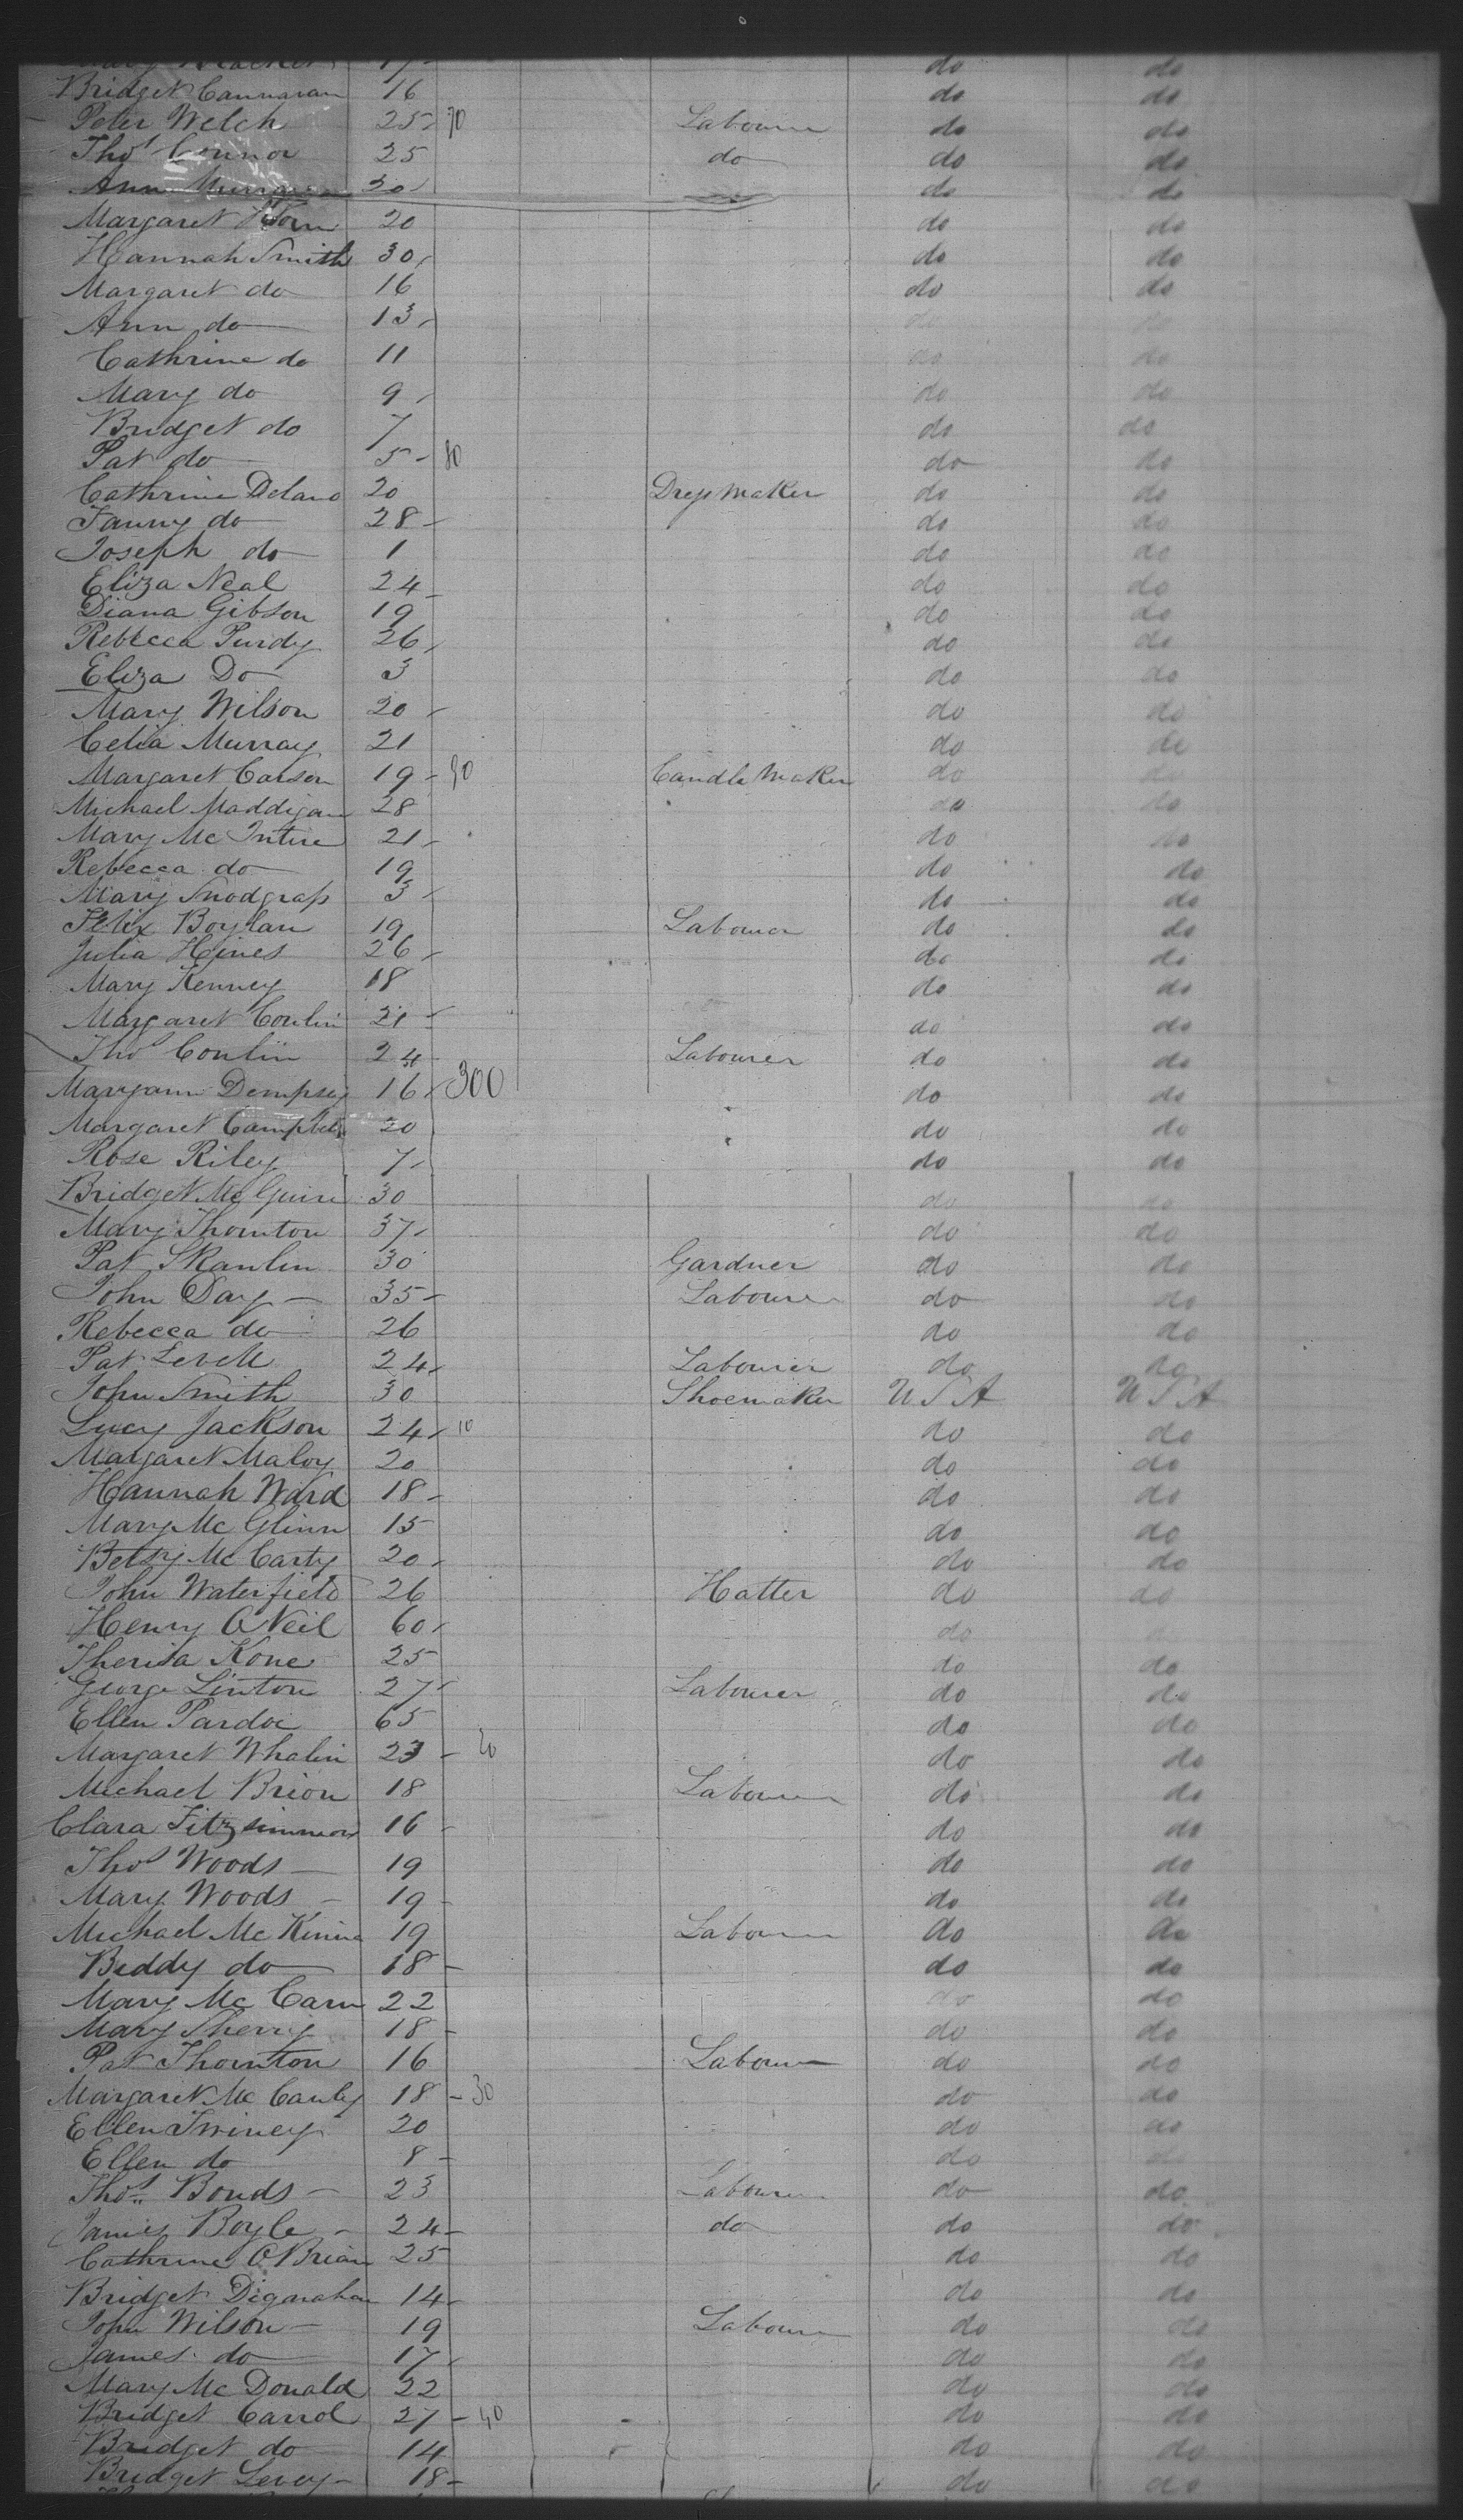 17 do do
Bridget Cannavan 16 do do
Peter Welch 25 70 Labourer do do
Thos Connor 25 do do do
Ann 20 do do
Margaret 20 do do
Hannah Smith 30 do do
Margaret do 16 do do
Ann do 13 do do
Cathrine do 11 do do
Mary do 9 do do
Bridget do 7 do do
Pat do 5 80 do do
Cathrine Delano 20 Dressmaker do do
Fanny do 28 do do
Joseph do 1 do do
Eliza Neal 24 do do
Diana Gibson 19 do do
Rebecca Purdy 26 do do
Eliza Do 3 do do
Mary Wilson 20 do do
Celia Murray 21 do do
Margaret Carson 19 90 Candle Maker do do
Michael Maddigan 28 do do
Mary Mc Intire 21 do do
Rebecca do 19 do do
Mary Snodgrass 3 do do
Felix Boylan 19 Labourer do do
Julia Hines 26 do do
Mary Kenney 18 do do
Margaret Conlin 21 do do
Thos Conlin 24 Labourer do do
Maryann Dempsey 16 300 do do
Margaret Campbell 20 do do
Rose Riley 7 do do
Bridget Mc Guire 30 do do
Mary Thornton 37 do do
Pat Skanlin 30 Gardner do do
John Day 35 Labourer do do
Rebecca do 26 do do
Pat Levell 24 Labourer do do
John Smith 30 Shoemaker U S A U S A
Lucy Jackson 24 10 do do
Margaret Maloy 20 do do
Hannah Ward 18 do do
Mary Mc Glinn 15 do do
Betsy Mc Carty 20 do do
John Waterfield 26 Hatter do do
Henry O Neil 60 do
Therisa Kone 25 do do
George Linton 27 Labourer do do
Ellen Pardoe 65 do do
Margaret Whalin 23 20 do do
Michael Brion 18 Labourer do do
Clara Fitzsimmons 16 do do
Thos Woods 19 do do
Mary Woods 19 do do
Michael Mc Kinna 19 Labourer do do
Biddy do 18 do do
Mary Mc Carn 22 do do
Mary Sherry 18 do do
Pat Thornton 16 Labourer do do
Margaret Mc Cauley 18 30 do do
Ellen Twiney 20 do do
Ellen do 8 do do
Thos Bonds 23 Labourer do do
James Boyle 24 do do do
Cathrine O Brian 25 do do
Bridget Diganahan 14 do do
John Wilson 19 Labourer do do
James do 17 do do
Mary Mc Donald 22 do do
Bridget Carrol 27 40 do do
Bridget do 14 do do
Bridget Levey 18 do do